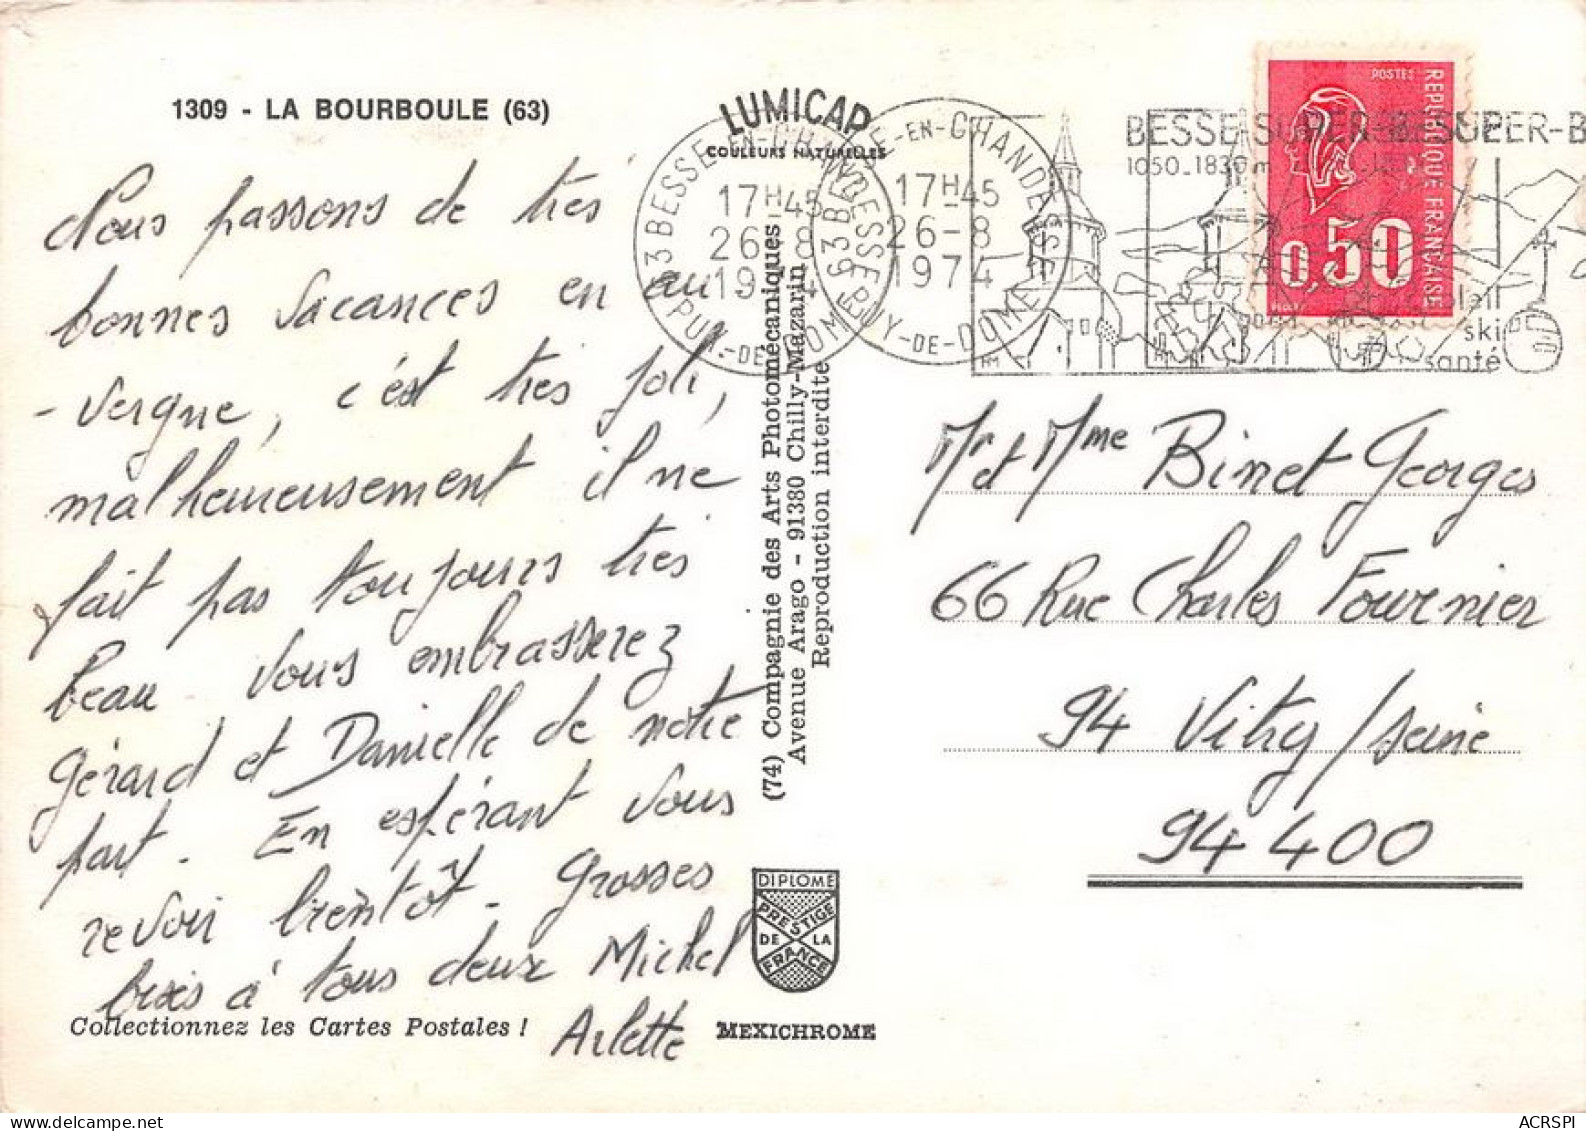 1309 - LA BOURBOULE (63)
LUMICAP
COULEURS NATURELLES
Nous passons de très
bonnes vacances en au
- vergne, c'est très joli,
malheureusement il ne
fait pas toujours très
beau. Vous embrasserez
Gérard et Danielle de notre
part. En espérant vous
revoir bientôt. Grosses
bises à tous deux Michel
Arlette
Collectionnez les Cartes Postales !
MEXICHROME
(74) Compagnie des Arts Photomécaniques
Avenue Arago - 91380 Chilly-Mazarin
Reproduction interdite
DIPLOME
PRESTIGE
DE LA
FRANCE
63 BESSE-EN-CHANDESSE
17H45
26-8
1974
PUY-DE-DOME
63 BESSE-EN-CHANDESSE
17H45
26-8
1974
PUY-DE-DOME
BESSE-SUPER-BESSE
1050_1830m
SUPER-B
soleil
ski
santé
POSTES
REPUBLIQUE FRANCAISE
0,50
Mr et Mme Binet Georges
66 Rue Charles Fournier
94 Vitry/seine
94 400
ACRSPI